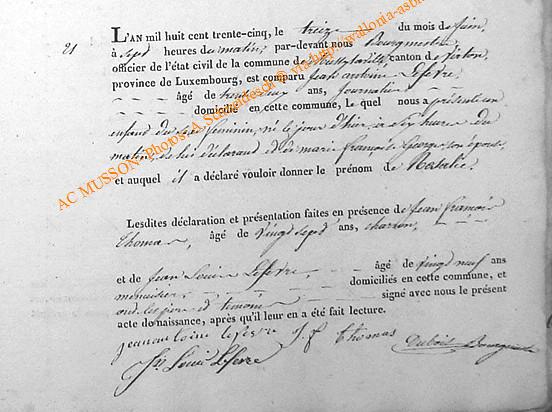 L'AN mil huit cent trente-cinq, le treize du mois de juin,
21 à sept heures de matin, par-devant nous Bourgmestre
officier de l'état civil de la commune de canton de Virton,
province de Luxembourg, est comparu Jean antoine Lefevre,
âgé de trente deux ans, journalier
domicilié en cette commune, Lequel nous a présenté un
enfant du sexe féminin, né le jour d'hier, à six heures du
matin, de lui déclarant et de marie françoise son épouse
et auquel il a déclaré vouloir donner le prénom de Natalie.
Lesdites déclaration et présentation faites en présence de Jean françois
Thomas, âgé de vingt sept ans, charron,
et de Jean Louis Lefevre âgé de vingt neuf ans
menuisier domiciliés en cette commune, et
ont les père et témoins signé avec nous le présent
acte de naissance, après qu'il leur en a été fait lecture.
jean antoine lefevre J. f thomas Dubois Bourgmestre
Jn Louis Lefevre
AC MUSSON, Photos: A. Schleidesch @ via http://wallonia-asb